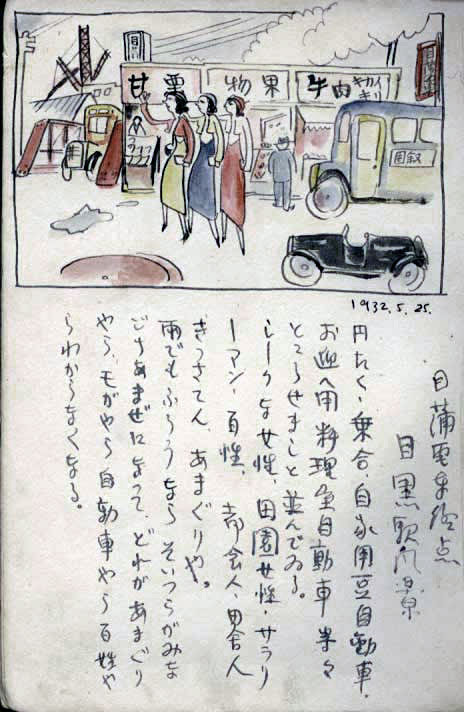 甘栗
物果
牛肉
1932.5.25.
目蒲電車終点
目黒駅風景
円たく・乗合・自家用豆自動車・
お迎へ用料理屋自動車等々
ところせましと並んでゐる。
シークな女性、田園女性、サラリ
ーマン、百姓、都会人、田舎人
きっさてん、あまぐりや。
雨でもふらうならそいつらがみな
ごちゃまぜになって、どれがあまぐり
やら、モガやら自動車やら百姓や
らわからなくなる。